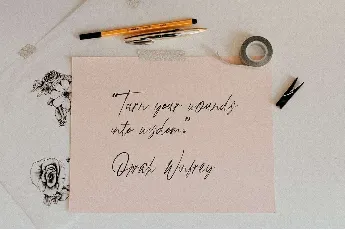 "Turn your wounds
into wisdom."
Oprah Winfrey